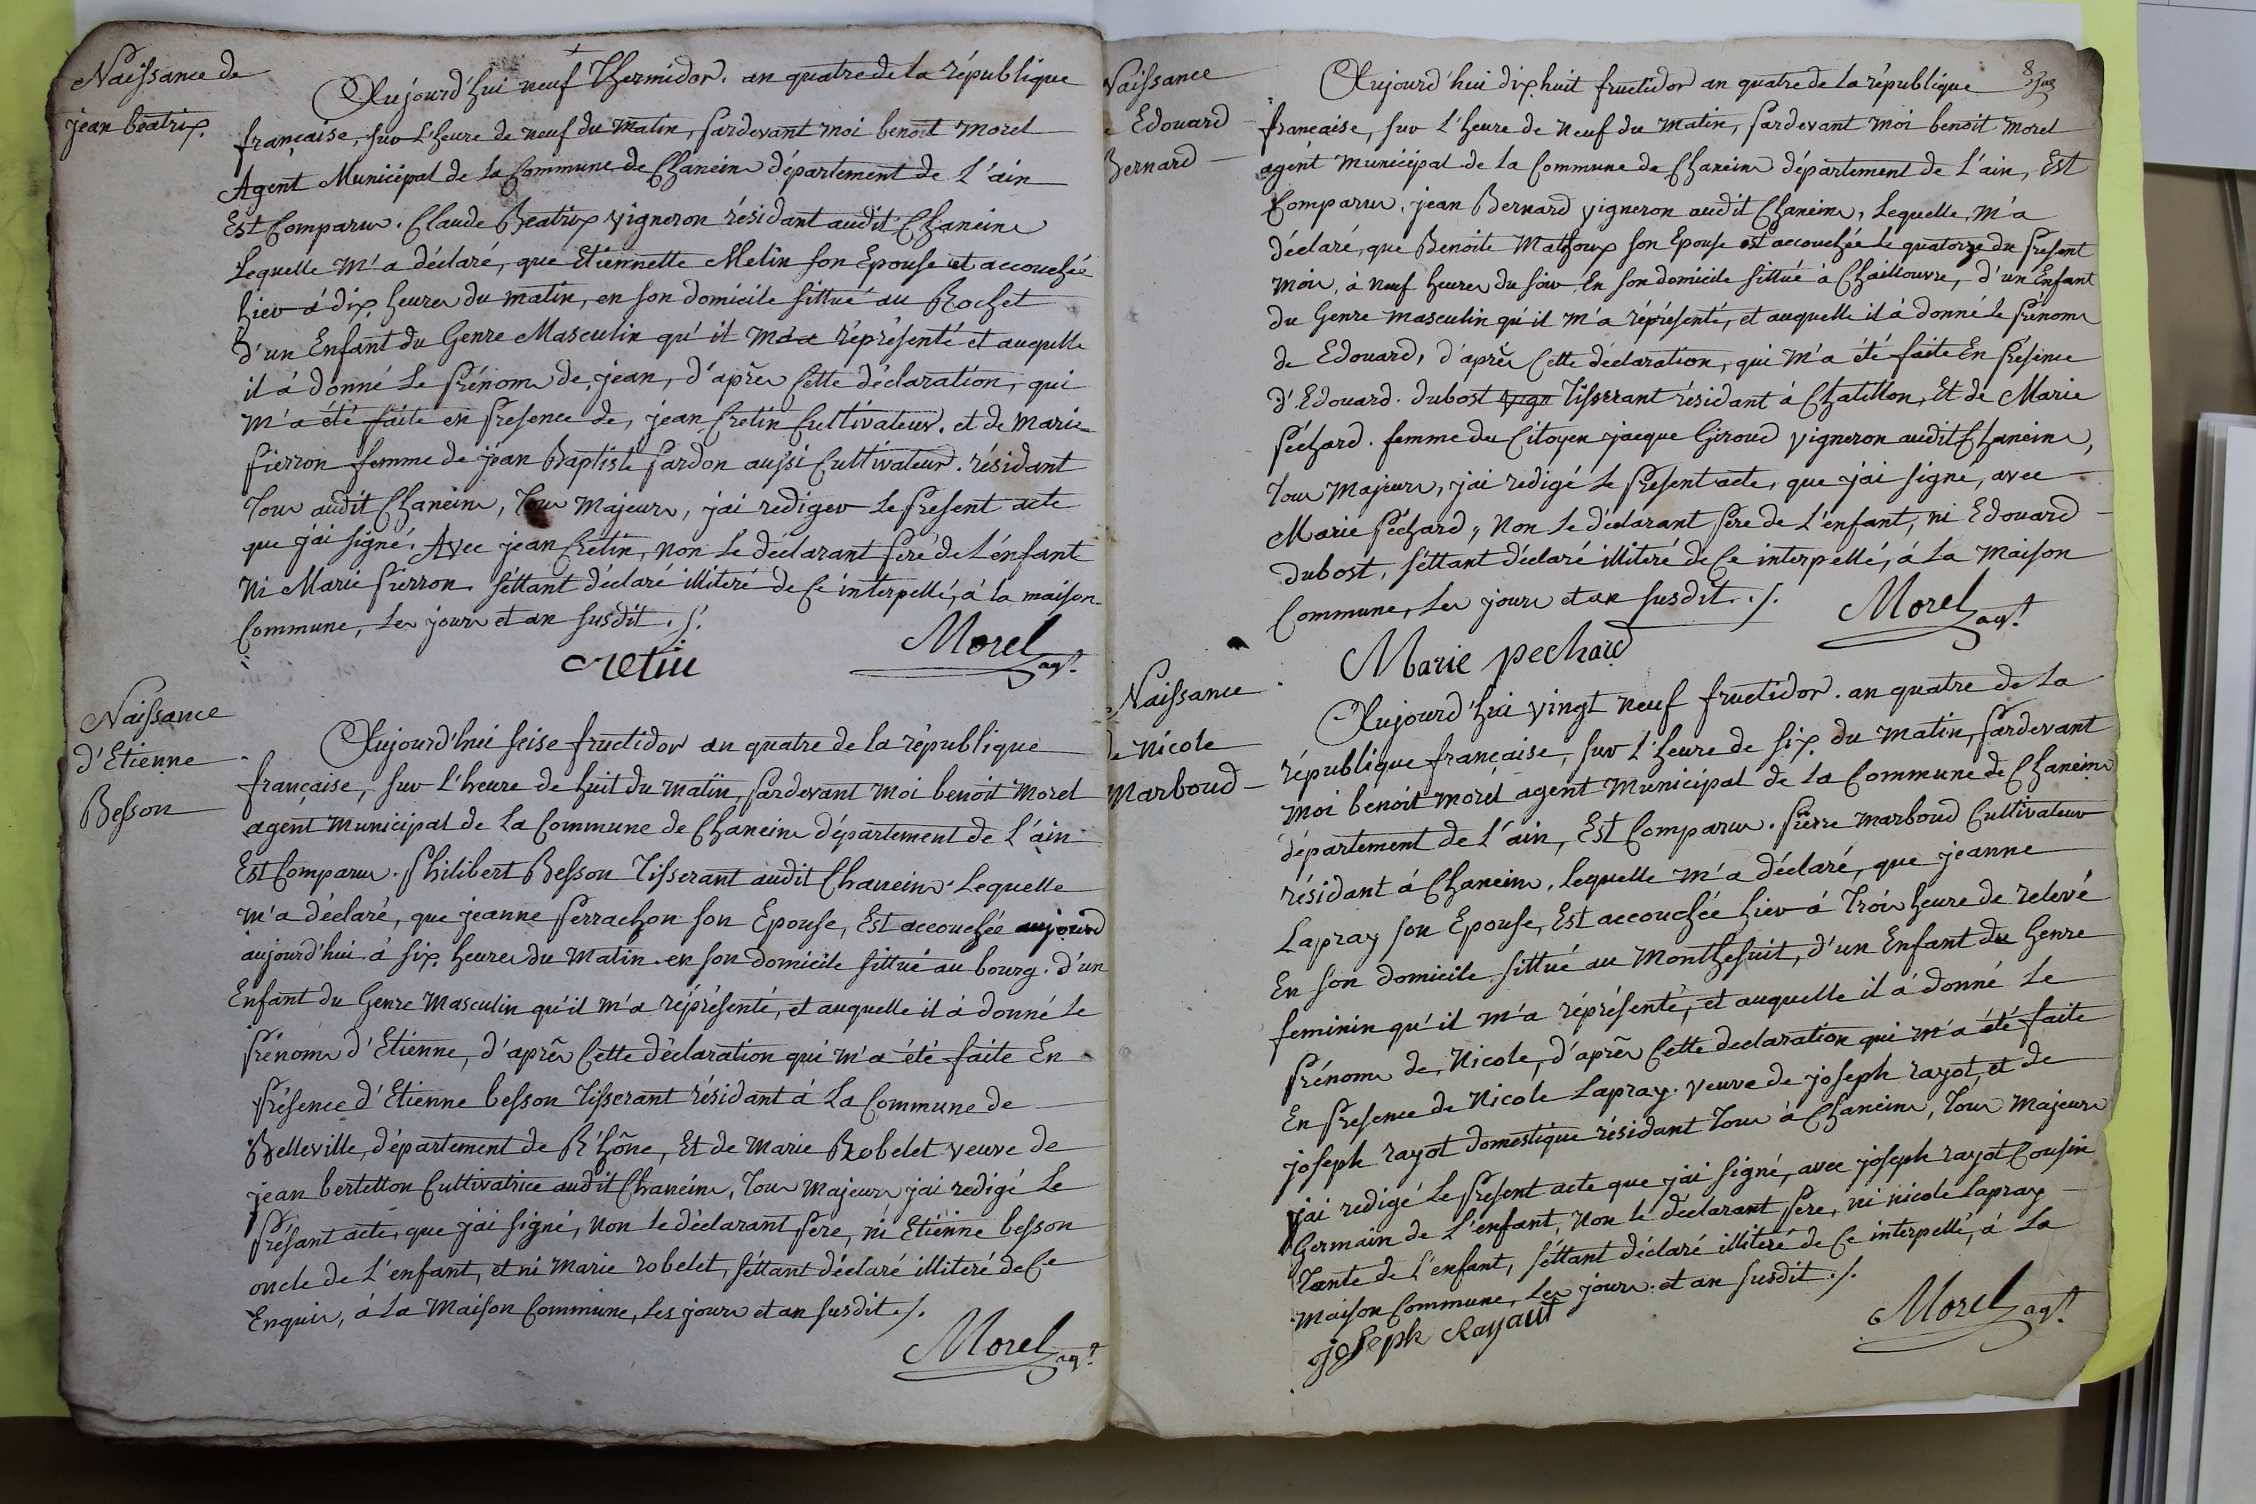 Naissance de
jean beatrix.
Aujourd'hui neuf Thermidor. an quatre de la république
française, sur l'heure de neuf du matin, pardevant moi benoit morel
Agent Municipal de la Commune de Chaneins département de L'ain
Est Comparu. Claude Beatrix vigneron résidant audit Chaneins
Lequelle m'a déclaré, que Etiennette Melin son Epouse est accouchée
hier à dix heures du matin, en son domicile sittué au Rochet
d'un Enfant du Genre Masculin qu'il m'a réprésenté et auquelle
il à donné le Prénom de, jean, d'après Cette déclaration, qui
m'a été faite en presence de, jean Cretin Cultivateur. et de Marie
pierron femme de jean Baptiste pardon aussi Cultivateur. résidant
Tous audit Chaneins, Tous majeurs, j'ai rediger le present acte
que j'ai signé. Avec jean Crétin, non le déclarant peré de l'énfant
Ni Marie pierron. séttant déclaré illiteré de Ce interpellé, à la maison
Commune, les jours et an susdit ./.
cretin
Morel agt.
Naissance
d'Etienne
Besson
Aujourd'hui seise fructidor an quatre de la république
française, sur l'heure de huit du matin, pardevant moi benoit morel
agent municipal de la Commune de Chaneins département de L'ain
Est Comparu. Philibert Besson Tisserant audit Chaneins. Lequelle
m'a déclaré, que jeanne perrachon son Epouse, Est accouchée aujourd
aujourd'hui à six heures du Matin en son domicile sittué au bourg. d'un
Enfant du Genre Masculin qu'il m'a réprésenté, et auquelle il à donné le
Prénom d'Etienne, d'après Cette déclaration qui m'a été faite En
Présence d'Etienne besson Tisserant résidant à La Commune de
Belleville, département de Rhône, Et de Marie Robelet veuve de
jean bertetton Cultivatrice audit Chaneins, Tous majeurs j'ai redigé le
Présant acte, que j'ai signé, non le déclarant pere, ni Etienne besson
oncle de L'enfant, et ni Marie robelet, séttant déclaré illiteré de Ce
Enquis, à La Maison Commune, Les jours et an susdit ./.
Morel agt.
Naissance
Edouard
Bernard
Aujourd'hui dix huit fructidor an quatre de la république
française, sur l'heure de Neuf du Matin, pardevant moi benoit morel
agént municipal de la Commune de Chaneins département de L'ain, Est
Comparu, jean Bernard vigneron audit Chaneins, Lequelle, m'a
déclaré, que Benoite Mathoux son Epouse est accouchée le quatorze du present
mois, à neuf heures du soir En son domicile sittué à Chaillouvre, d'un Enfant
du Genre masculin qu'il m'a réprésenté, et auquelle il à donné le Prénom
de Edouard, d'après Cette déclaration, qui m'a été faite En Présence
d'Edouard. dubost vign Tisserant résidant à Chatillon, Et de Marie
péchard. femme du Citoyen jacque Giroud vigneron audit Chaneins,
Tous majeurs, j'ai redigé le present acte, que j'ai signé, avec
Marie péchard, Non le déclarant pere de L'enfant, ni Edouard
dubost, séttant déclaré illiteré de Ce interpellé, à La Maison
Commune, les jours et an susdit ./.
Morel agt.
Marie pechard
Naissance
de Nicole
Marboud
Aujourd'hui vingt neuf fructidor. an quatre de la
république française, sur l'heure de six du matin, pardevant
moi benoit morel agent municipal de la Commune de Chaneins
département de L'ain, Est Comparu. pierre marboud Cultivateur
résidant à Chaneins, lequelle m'a déclaré, que jeanne
Lapray son Epouse, Est accouchée hier à Trois heure de relevé
En son domicile sittué au Monthesuit, d'un Enfant du Genre
feminin qu'il m'a réprésenté, et auquelle il à donné le
Prénom de, Nicole, d'après Cette declaration qui m'a été faite
En Presence de Nicole Lapray. veuve de joseph rayot, et de
joseph rayot domestique résidant Tous à Chaneins, Tous majeurs
j'ai redigé le present acte que j'ai signé, avec joseph rayot Cousin
Germain de L'enfant, Non le déclarant pere, ni nicole Lapray
Tante de L'enfant, séttant déclaré illiteré de Ce interpellé, à La
maison Commune, Les jours et an susdit ./.
joseph Rayaut
Morel agt.